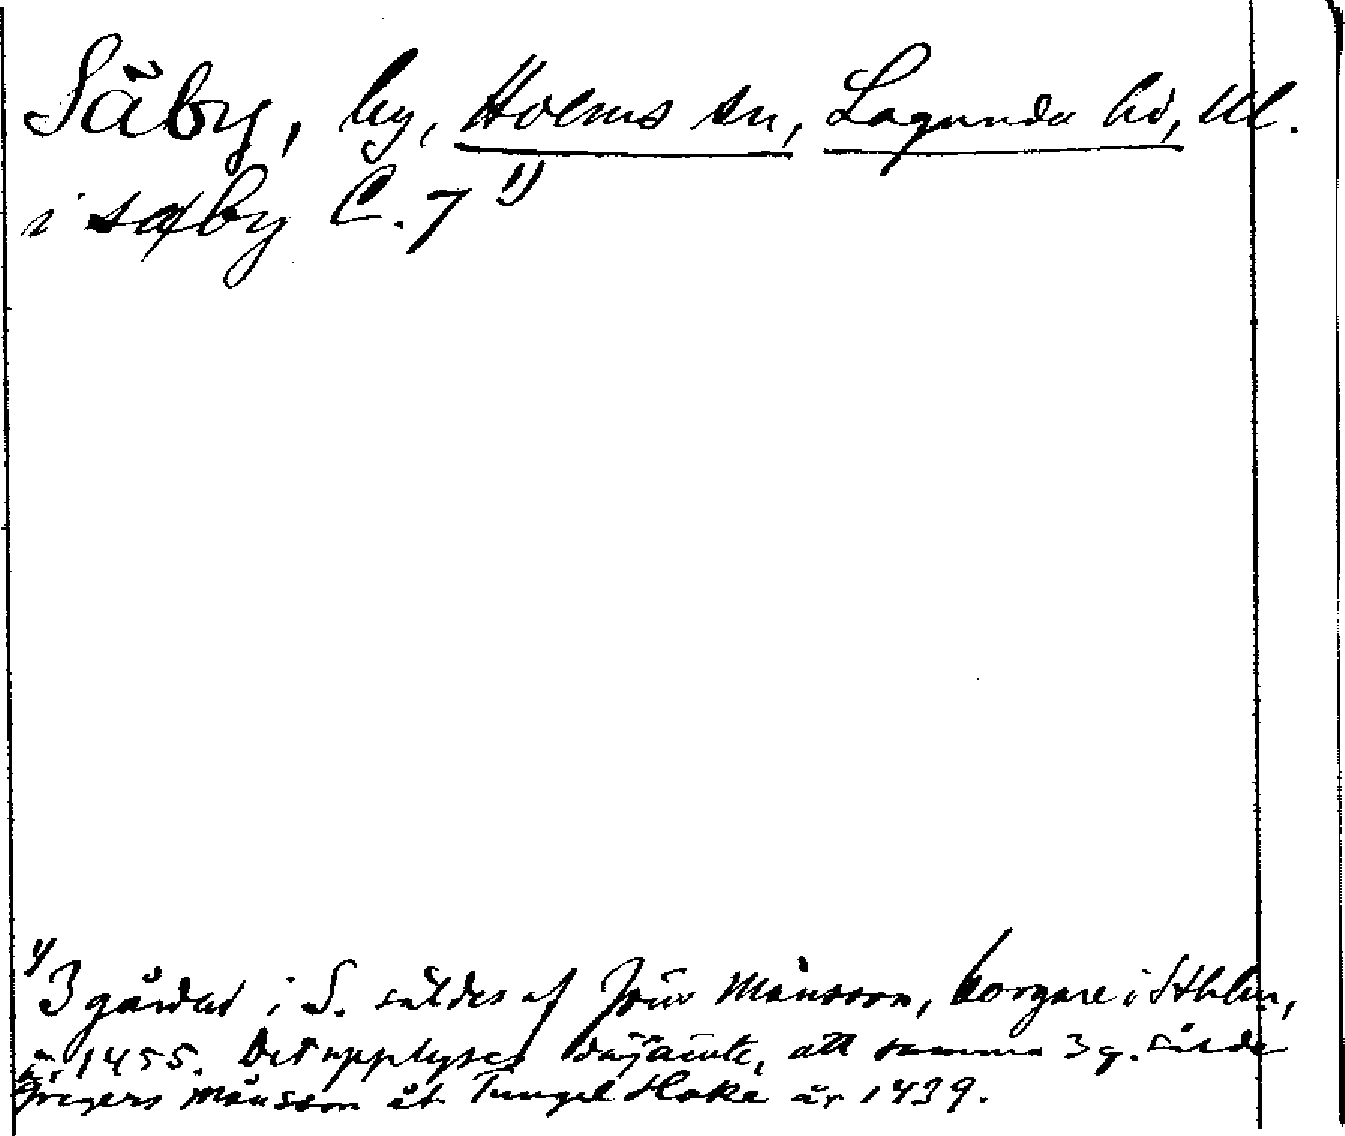 Säby, by, Holms sn, Lagunda hd, Upl.
i sæby C. 7 1)
1) 3 gårdar i S. såldes af Jöns Månsson, borgare i Sthlm,
år 1455. Det upplyses därjämte, att samma 3 g. sålde
Gregers Månsson åt Tungel Hake år 1439.